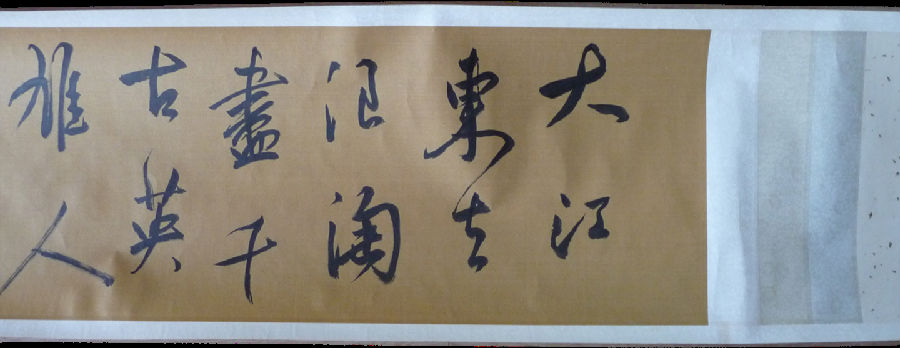 大江
東去
浪淘
盡千
古英
雄人